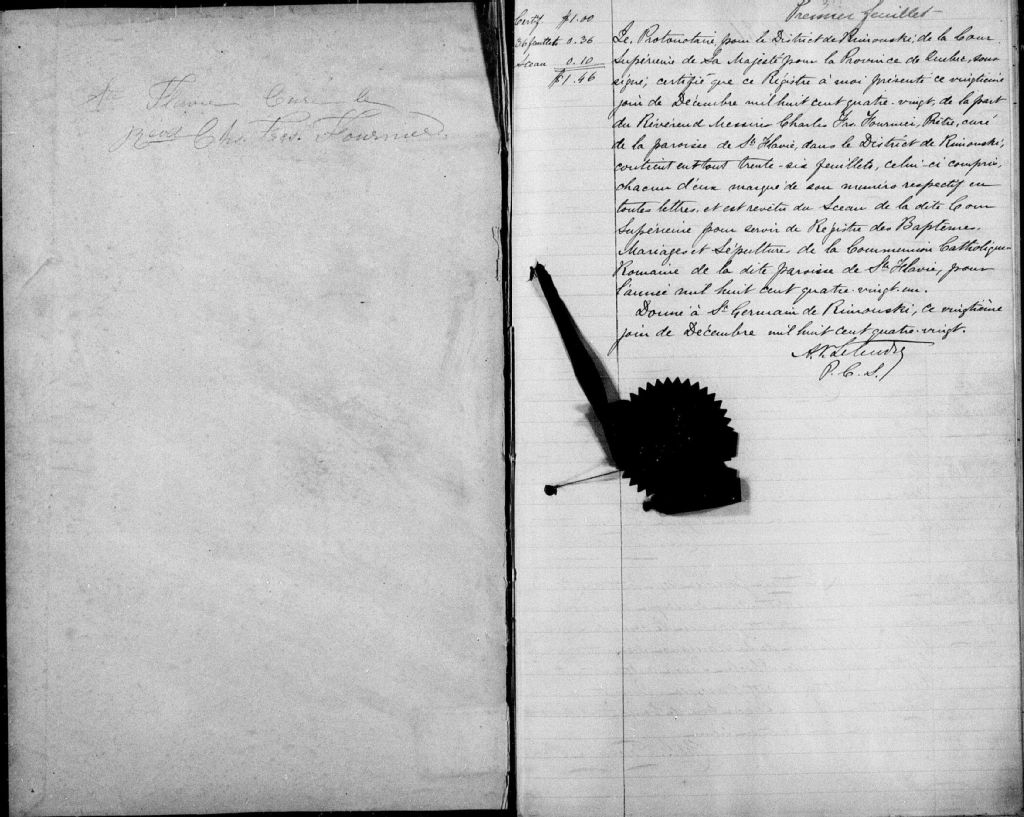 Ste Flavie Cure le
Revd Chs. Frs. Fournier
Premier feuillet
Certif. $1.00
36 feuillets 0.36
Sceau 0.10
$1.46
Le Protonotaire, pour le District de Rimouski, de la Cour
Supérieure de Sa Majesté pour la Province de Québec, sous-
signé, certifie que ce Régistre à moi présenté ce vingtième
join de Décembre mil huit cent quatre-vingt, de la part
du Révérend Messire Charles Frs Fournier, Prêtre, curé
de la paroisse de Ste Flavie, dans le District de Rimouski,
contient en tout trente-six feuillets, celui-ci compris,
chacun d'eux marqué de son numéro respectif en
toutes lettres, et est revêtu du Sceau de la dite Cour
Supérieure pour servir de Régistre des Baptêmes,
Mariages et Sépultures de la Communion Catholique-
Romaine de la dite paroisse de Ste Flavie, pour
l'année mil huit cent quatre-vingt-un.
Donné à St Germain de Rimouski, ce vingtième
join de Décembre mil huit cent quatre-vingt.
P. C. S.